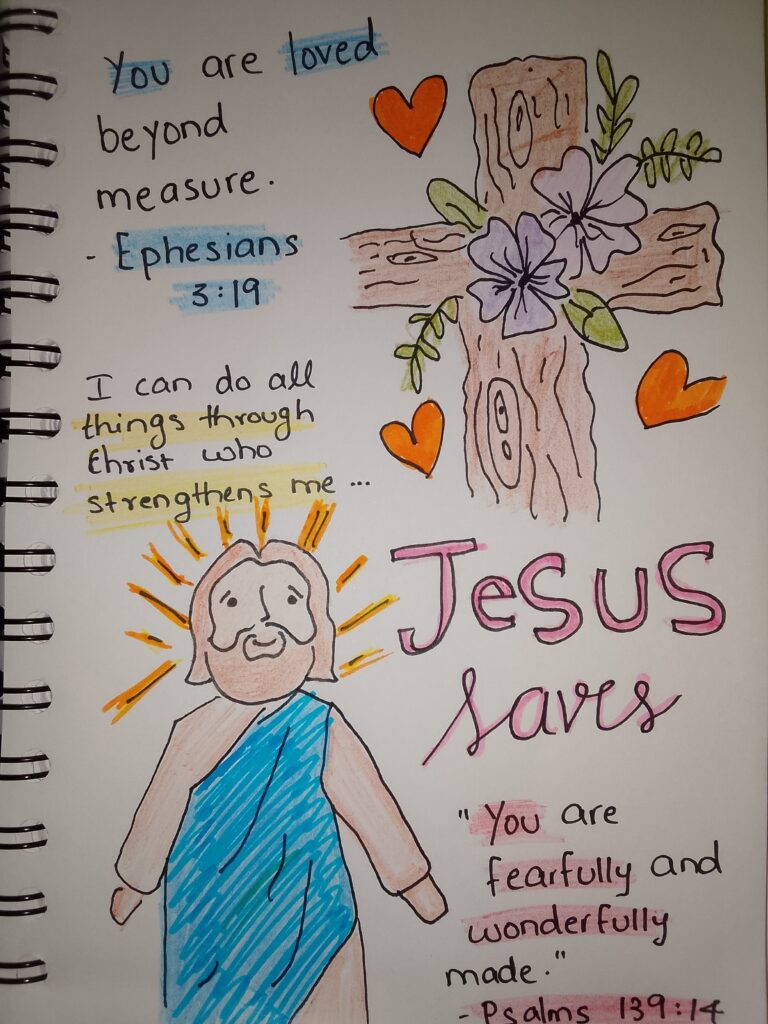 You are loved
beyond
measure.
- Ephesians
3:19
I can do all
things through
Christ who
strengthens me ...
Jesus
saves
"You are
fearfully and
wonderfully
made."
- Psalms 139:14